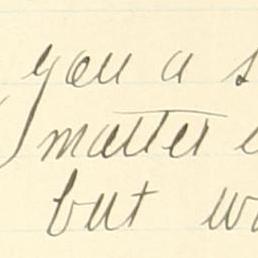 you a s
matter
but w